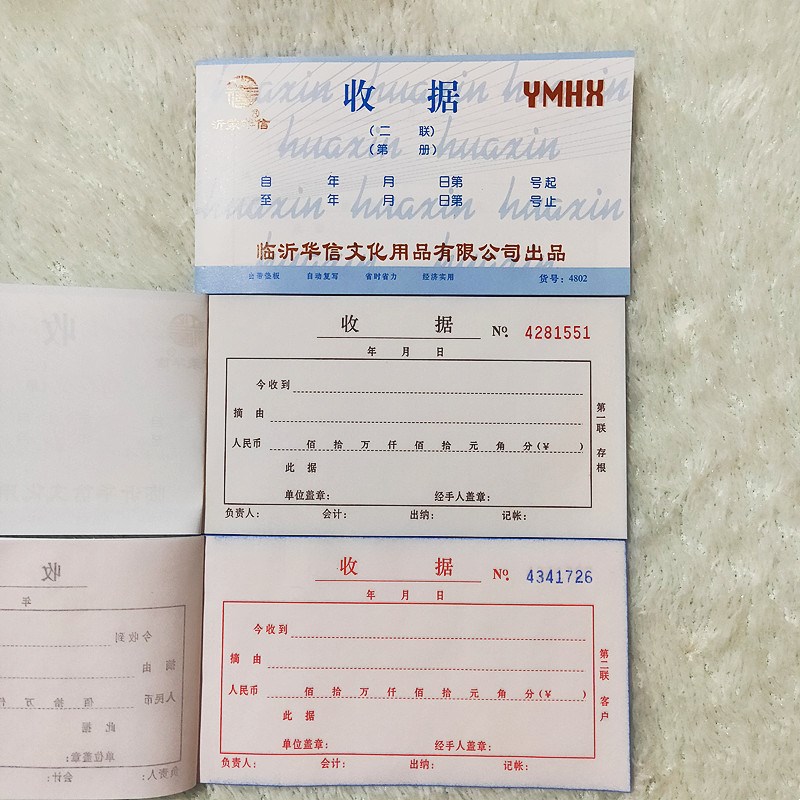 收 据
YMHX
沂蒙华信
(二 联)
(第 册)
自 年 月 日第 号起
至 年 月 日第 号止
huaxin huaxin
huaxin huaxin
huaxin huaxin huaxin
临沂华信文化用品有限公司出品
自带垫板 自动复写 省时省力 经济实用 货号：4802
收 据 №. 4281551
年 月 日
今收到
摘 由
人民币 佰 拾 万 仟 佰 拾 元 角 分(¥ )
此 据
单位盖章： 经手人盖章：
负责人： 会计： 出纳： 记帐：
第一联 存根
收 据 №. 4341726
年 月 日
今收到
摘 由
人民币 佰 拾 万 仟 佰 拾 元 角 分(¥ )
此 据
单位盖章： 经手人盖章：
负责人： 会计： 出纳： 记帐：
第二联 客户
收
年
今收到
摘 由
人民币 佰 拾 万 仟
此 据
单位盖章：
负责人： 会计：